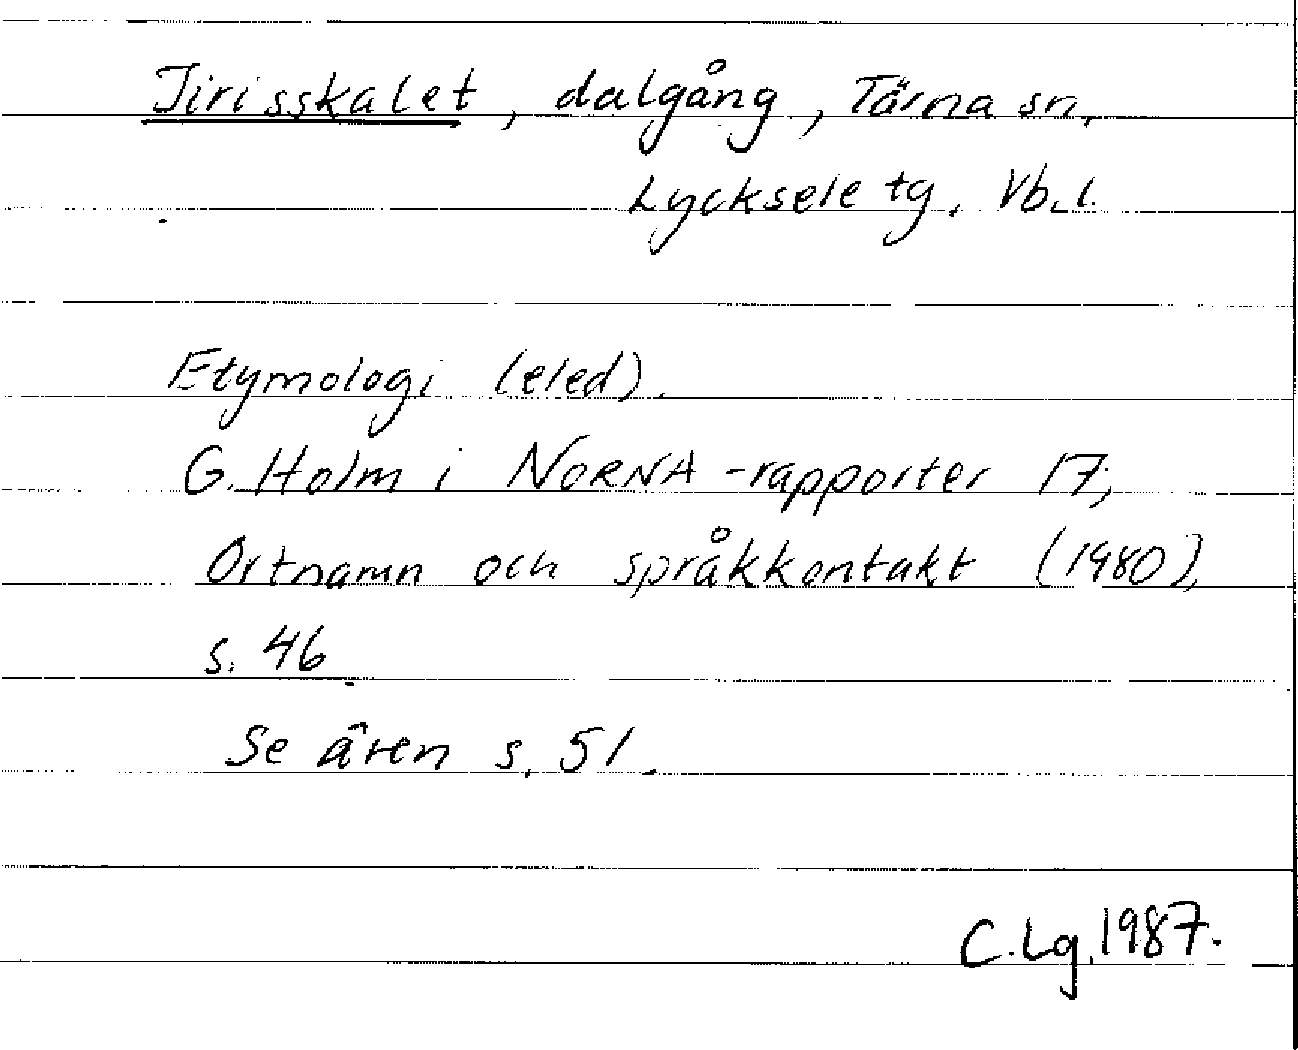 Jirisskalet, dalgång, Tärna sn,
Lycksele tg. Vb. l.
Etymologi (eled).
G. Holm i NORNA-rapporter 17,
Ortnamn och språkkontakt (1980),
s. 46
Se även s. 51.
C. Lg. 1987.